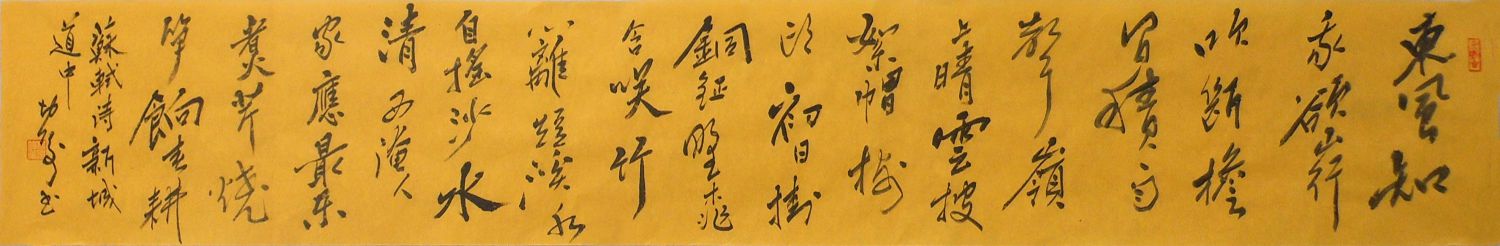 東風知
我欲山行
吹斷檐
間積雨
聲嶺
上晴雲披
絮帽樹
頭初日掛
銅鉦野桃
含笑竹
籬短溪柳
自搖沙水
清西崦人
家應最樂
煮芹燒
筍餉春耕
蘇軾詩新城
道中 書